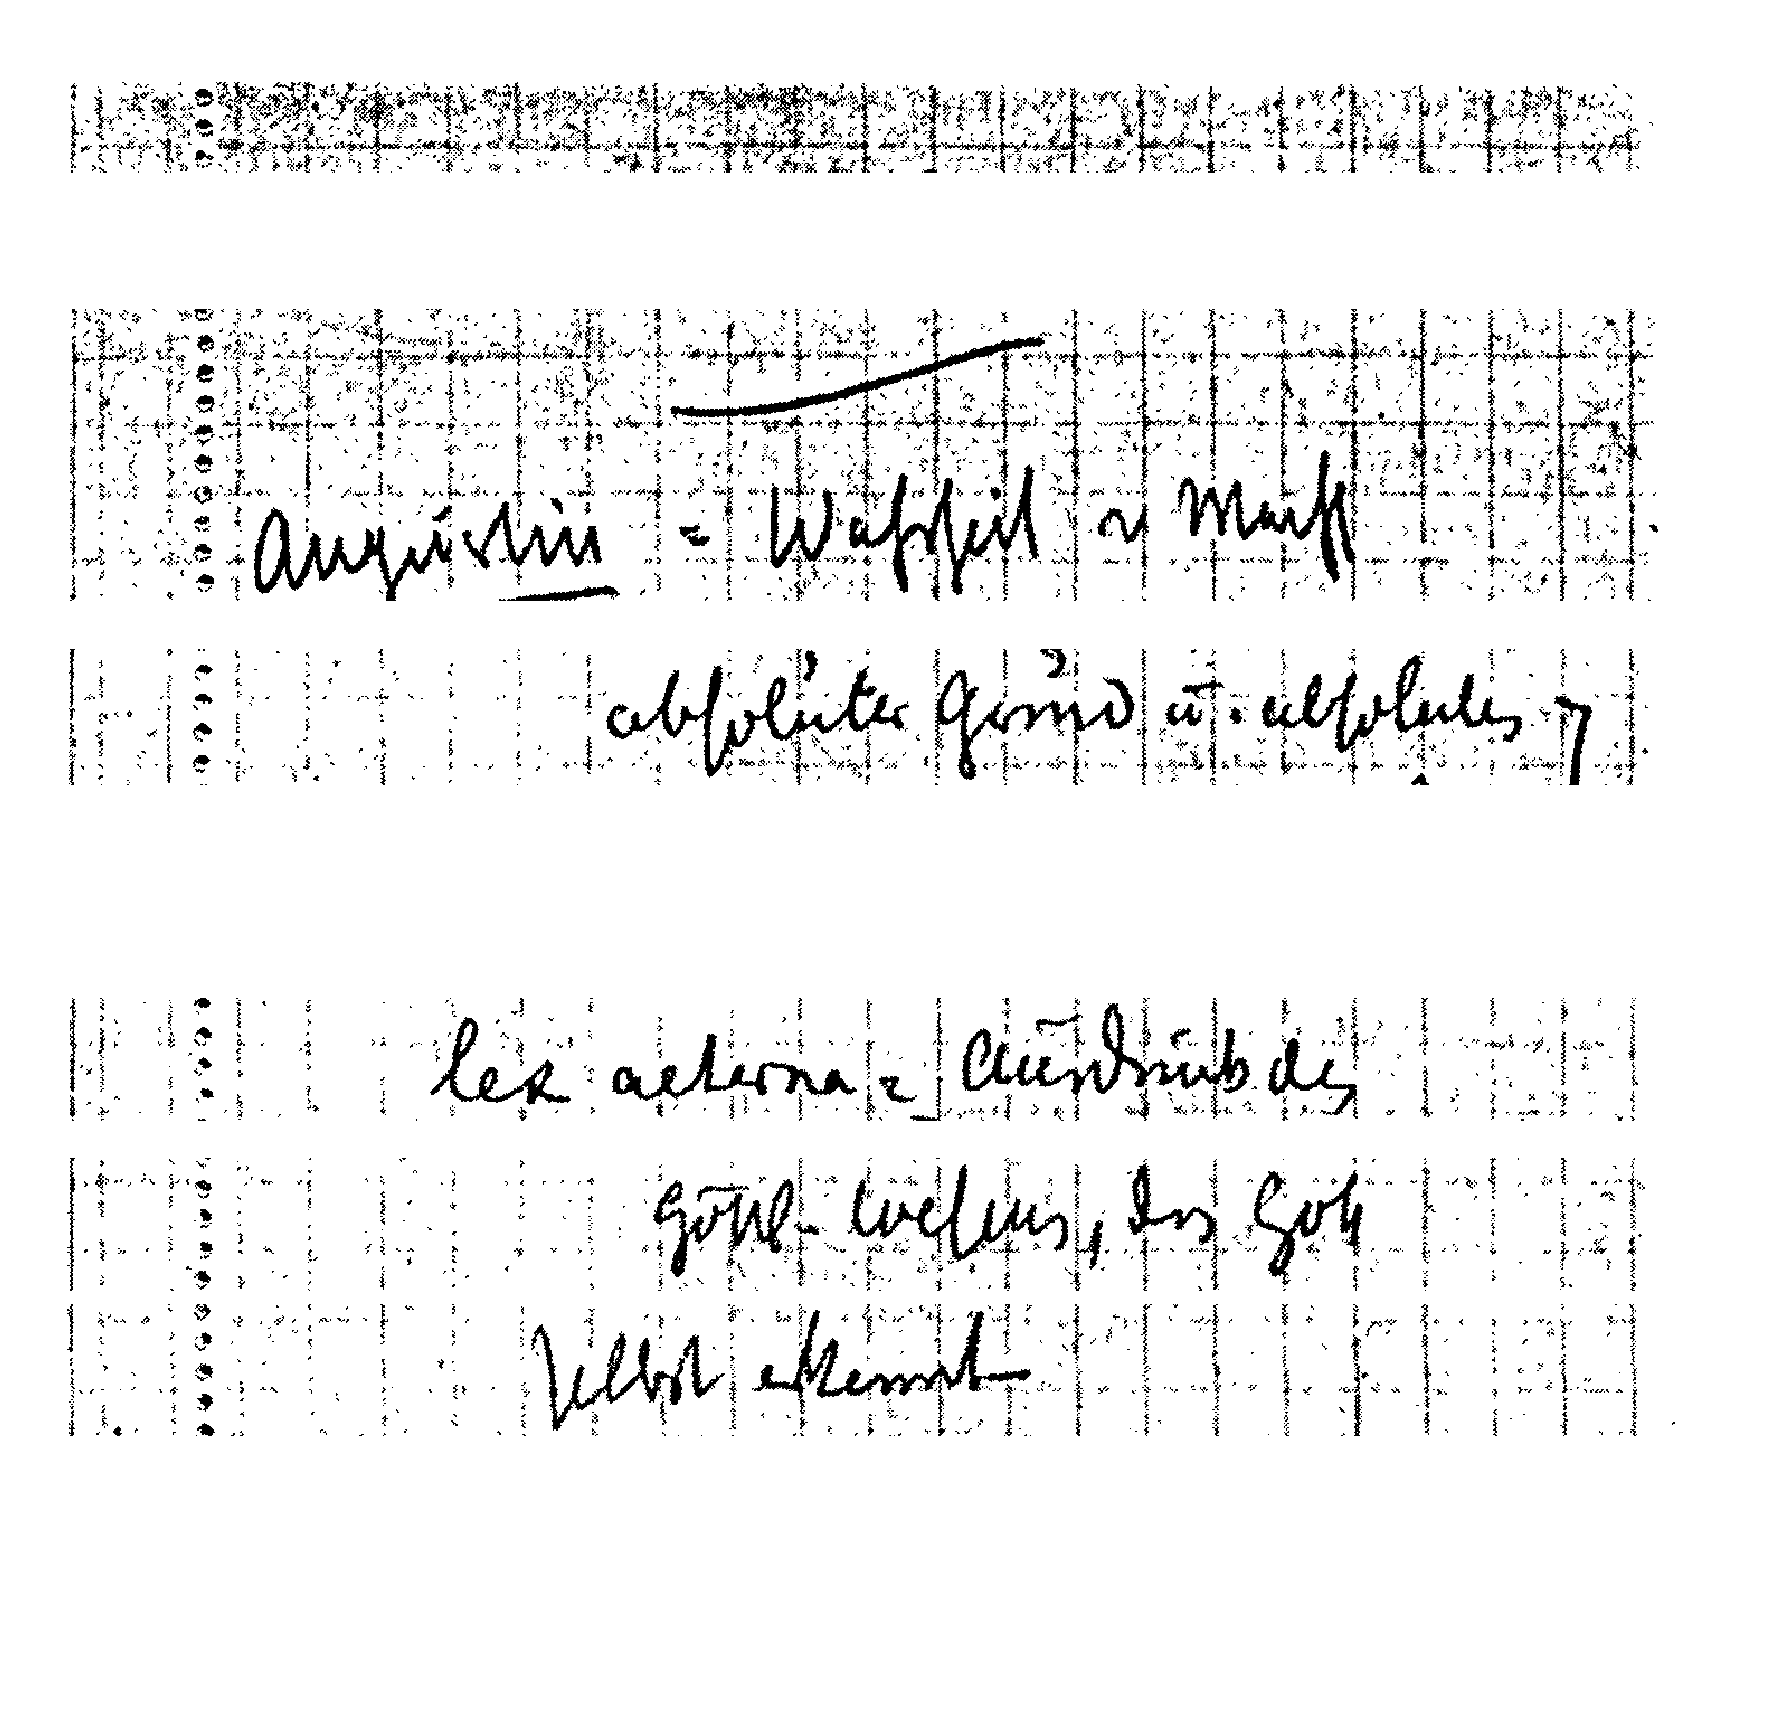 Augustin = Wahrheit u Macht
absoluter Grund u. absolutes
lex aeterna = Ausdruck des
Göttl. Wesens, das Gott
selbst erkennt